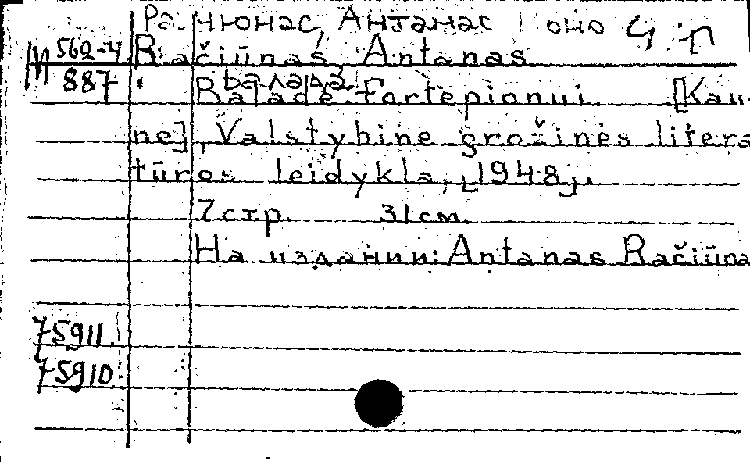 Рачюнас, Антанас оно
М 562-4
887
Račiūnas, Antanas
Баллада
Balade fortepionui [Kau
ne], Valstybinė grožinės litera
tūros leidykla, [1948].
7 стр. 31 см.
На издании: Antanas Račiūna
75911
75910